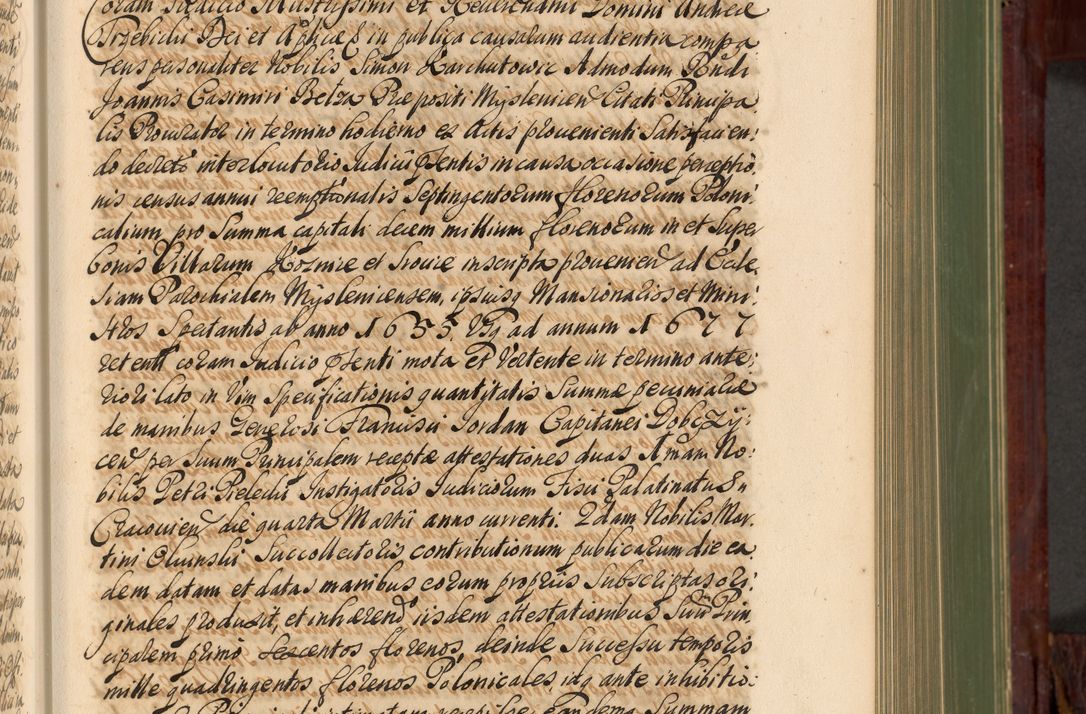 Coram Iudicio Illustrissimi et Reverendimi Domini Andreæ
Trzebicki Dei et Aplicæ in publica causarum audientia compa
rens personaliter Nobilis Simon Karchutowic Admodum Rndi
Joannis Casimiri Betza Præpositi Myslenicen Citati Principa
lis Procurator in termino hodierno ex Actis provenienti Satisfacien:
do decreto interlocutorio Iudicii psentis in causa occasione perceptio
nis census annui reemptionalis Septingentorum florenorum Poloni:
calium pro Summa capitali decem millium florenorum in et Super
bonis Villarum Koznice et Sroice inscripta provenien ad Eccle
siam Parochialem Myslenicensem, ipsiusq Mansionarios et Mini:
stros Spectantis ab anno 1655. Vsq ad annum 1677
retenti coram Iudicio psenti mota et Vertente in termino ante:
riori lato in Vim Specificationis quantitatis Summæ pecuniariæ
de manibus Generosi Francisci Jordan Capitanei Dobczy:
cen per Suum Principalem receptæ attestationes duas Amam No:
bilis Petri Pielecki Instigatoris Iudiciorum Fisci Palatinatus
Cracovien die quarta Martii anno currenti. 2dam Nobilis Mar:
tini Succollectoris contributionum publicarum die ea
dem datam et datas manibus eorum propriis Subscriptas ori:
ginales produxit, et inhærend iisdem attestationibus Suum Prin
cipalem primo sexcentos florenos, deinde Successu temporis
mille quadringentos florenos Polonicales, idq ante inhibitio:
Summam